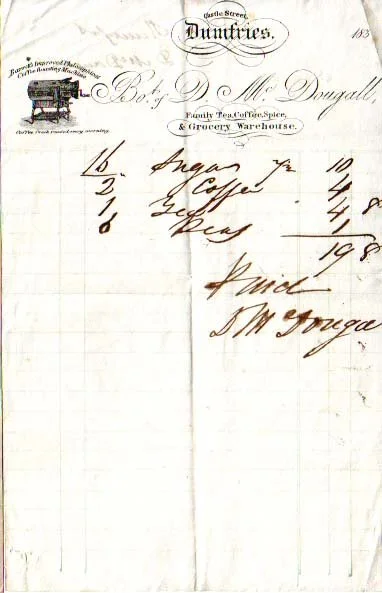 Castle Street,
Dumfries.
183
Barrett's Improved Philosophical
Coffee Roasting Machine
Bot. of D Mc. Dougall,
Family Tea, Coffee, Spice,
& Grocery Warehouse.
Coffee Fresh roasted every morning.
Sugar 10
2 Coffee 4
1 Tea 4 8
6 Peas 1
19 8
Paid
D McDouga